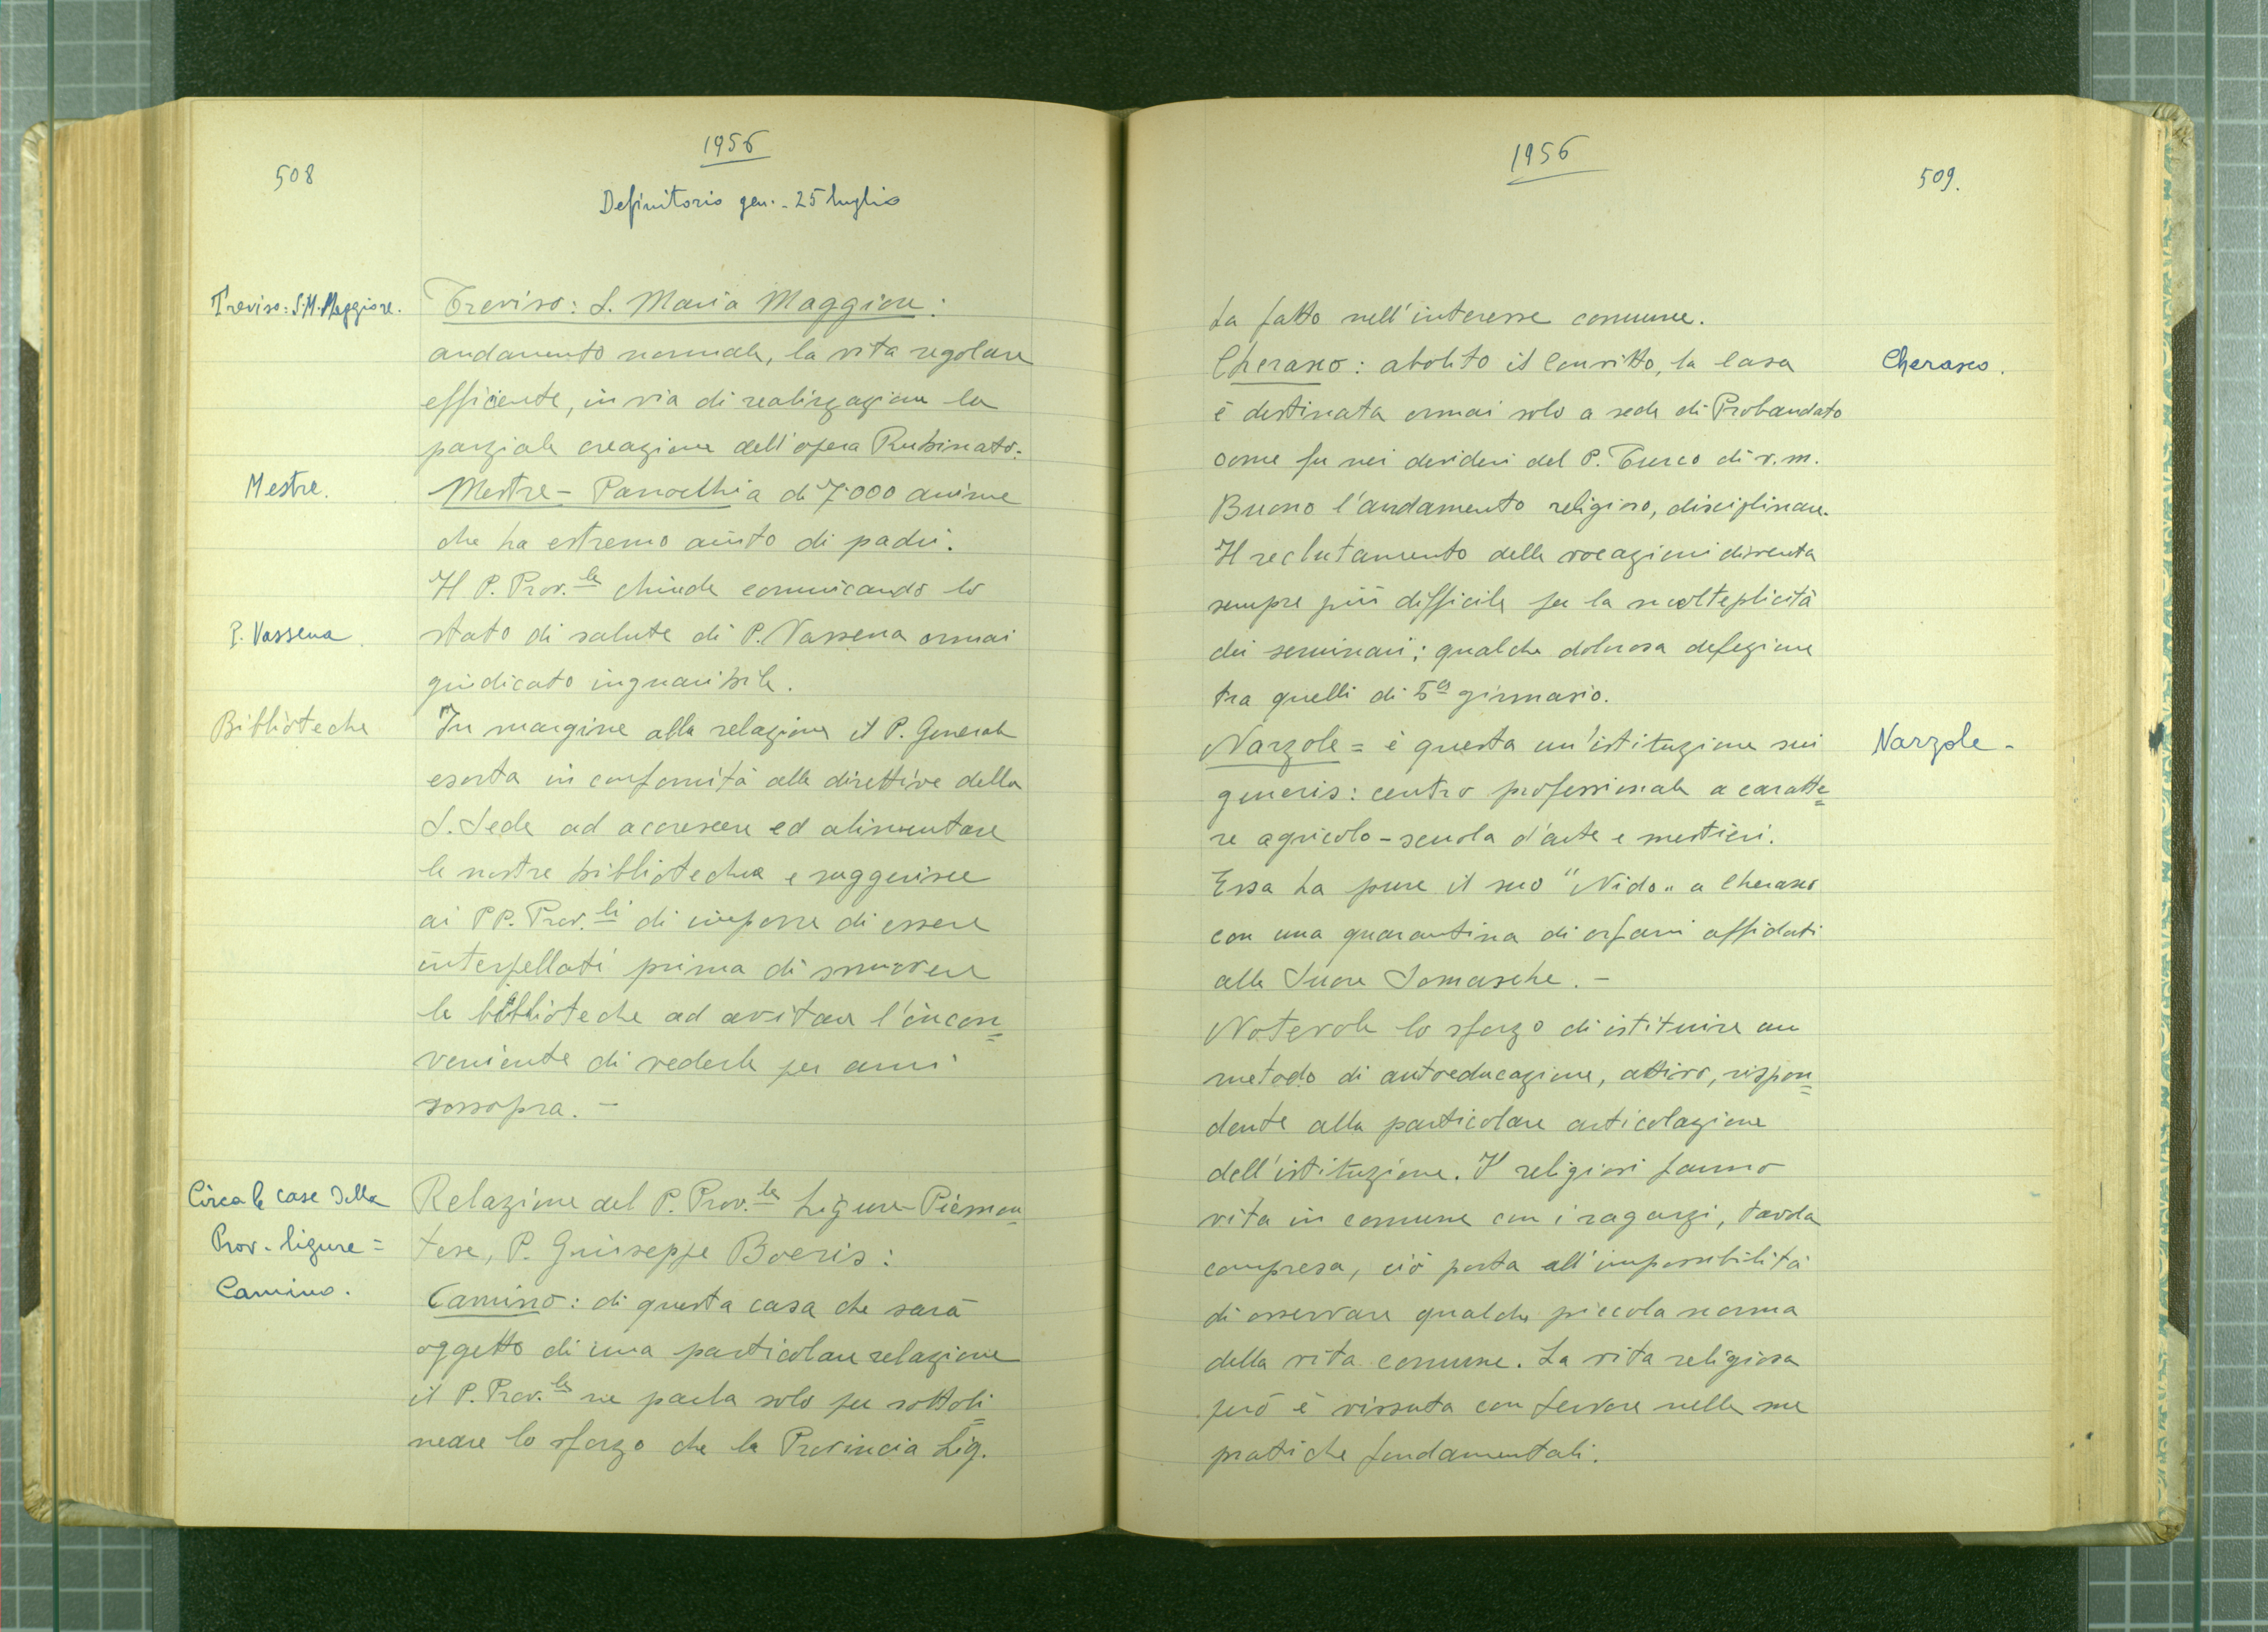 508
1956
Definitorio gen. - 25 luglio
Treviso: S.M. Maggiore.
Treviso: S. Maria Maggiore:
andamento normale, la vita regolare
efficiente, in via di realizzazione la
parziale creazione dell'opera Rubinato.
Mestre.
Mestre - Parrocchia di 7.000 anime
che ha estremo aiuto di padri.
Il P. Prov.le chiude comunicando lo
P. Vassena
stato di salute di P. Vassena ormai
giudicato inguaribile.
Biblioteche
In margine alla relazione il P. Generale
esorta in conformità alle direttive della
S. Sede ad accrescere ed alimentare
le nostre biblioteche e suggerisce
ai PP. Prov.li di imporre di essere
interpellati prima di smuovere
le biblioteche ad evitare l'incon=
veniente di vederle per anni
sossopra. -
Circa le case della
Prov. ligure =
Camino.
Relazione del P. Prov.le Ligure-Piemon=
tese, P. Giuseppe Boeris:
Camino: di questa casa che sarà
oggetto di una particolare relazione
il P. Prov.le ne parla solo per sottoli=
neare lo sforzo che la Provincia Lig.
1956
509.
ha fatto nell'interesse comune.
Cherasco.
Cherasco: abolito il Convitto, la casa
è destinata ormai solo a sede di Probandato
come fu nei desideri del P. Turco di v.m.
Buono l'andamento religioso, disciplinare.
Il reclutamento delle vocazioni diventa
sempre più difficile per la molteplicità
dei seminari; qualche dolorosa defezione
tra quelli di 5a ginnasio.
Narzole -
Narzole = è questa un'istituzione sui
generis: centro professionale a caratte=
re agricolo - scuola d'arte e mestieri.
Essa ha pure il suo "Nido" a Cherasco
con una quarantina di orfani affidati
alle Suore Somasche. -
Notevole lo sforzo di istituire un
metodo di autoeducazione, attivo, rispon=
dente alla particolare articolazione
dell'istituzione. I religiosi fanno
vita in comune con i ragazzi, tavola
compresa, ciò porta all'impossibilità
di osservare qualche piccola norma
della vita comune. La vita religiosa
però è vissuta con fervore nelle sue
pratiche fondamentali.